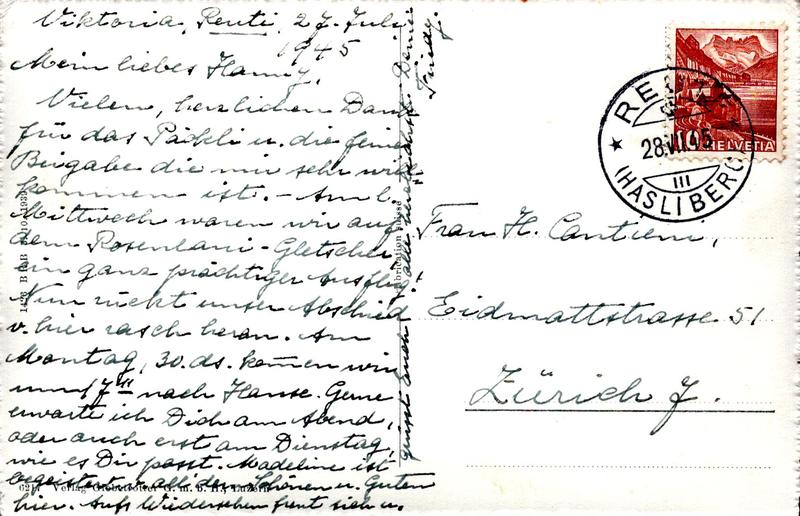 Viktoria, Reuti, 27. Juli
1945
Mein liebes Hanny,
Vielen, herzlichen Dank
für das Päckli u. die feine
Beigabe die mir sehr will
kommen ist. - Am l.
Mittwoch waren wir auf
dem Rosenlaui-Gletscher
ein ganz prächtiger Ausflug!
Nun rückt unser Abschied
v. hier rasch heran. Am
Montag, 30. ds. kommen wir
nach Hause. Gerne
erwarte ich Dich am Abend,
oder auch erst am Dienstag,
wie es Dir passt. Madeline ist
begeistert v. all dem Schönen u. Guten
hier. Aufs Wiedersehen freut sich u.
grüsst Euch alle herzlichst Deine
Friedy.
REUTI
28.VII.45
(HASLIBERG)
III
HELVETIA
Frau H. Cantieni,
Eidmattstrasse 51
Zürich 7.
Verlag Globetrotter G. m. b. H., Luzern